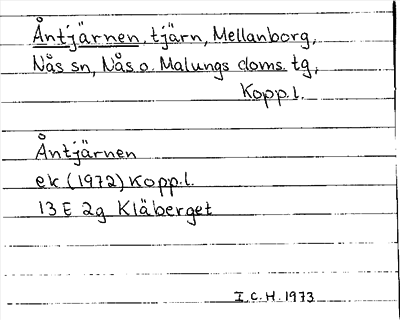 Åntjärnen, tjärn, Mellanborg,
Nås sn, Nås o. Malungs doms. tg,
Kopp. l.
Åntjärnen
ek (1972) Kopp. l.
13 E 2g Kläberget
I.C.H. 1973